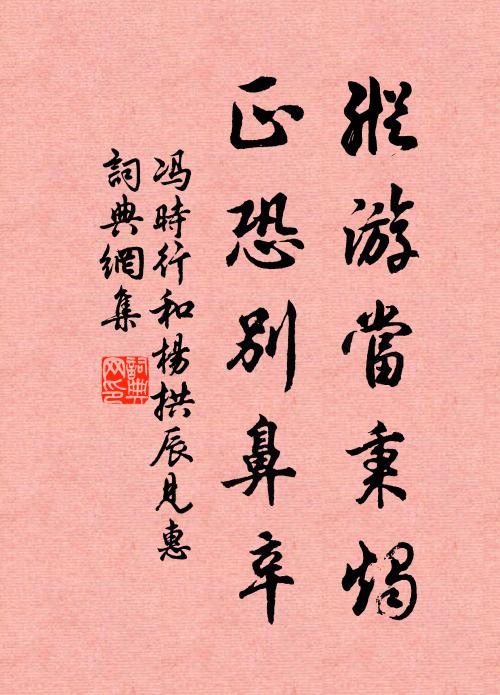 縱游當秉燭
正恐別鼻辛
冯時行和楊拱辰見惠
詞典網集
詞典網印